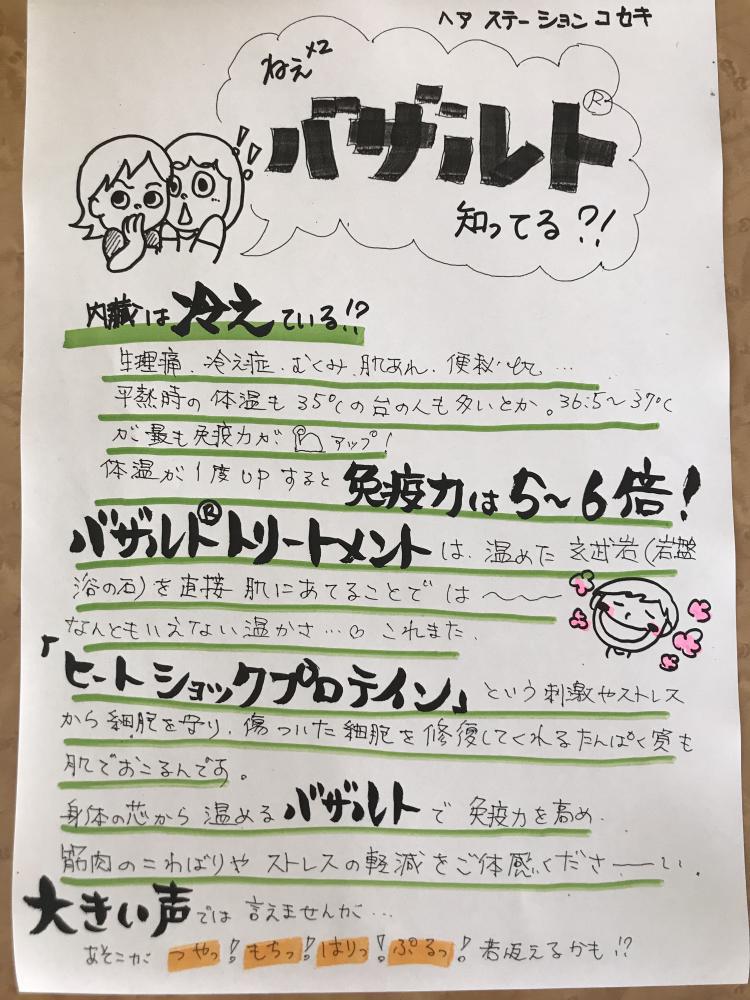 ヘアステーションコセキ
ねぇ×2
バザルト®
知ってる?!
!!
内臓は冷えている!?
生理痛、冷え症、むくみ、肌あれ、便秘 etc…
平熱時の体温も35℃の台の人も多いとか。36.5〜37℃
が最も免疫力がアップ!
体温が1度UPすると免疫力は5〜6倍!
バザルト®トリートメントは、温めた玄武岩(岩盤
浴の石)を直接肌にあてることでは〜〜〜
なんともいえない温かさ…♡これまた、
「ヒートショックプロテイン」という刺激やストレス
から細胞を守り、傷ついた細胞を修復してくれるたんぱく質も
肌でおこるんです。
身体の芯から温めるバザルトで免疫力を高め、
筋肉のこわばりやストレスの軽減をご体感くださーーい。
大きい声では言えませんが…
あそこがつやっ!もちっ!はりっ!ぷるっ!若返えるかも!?